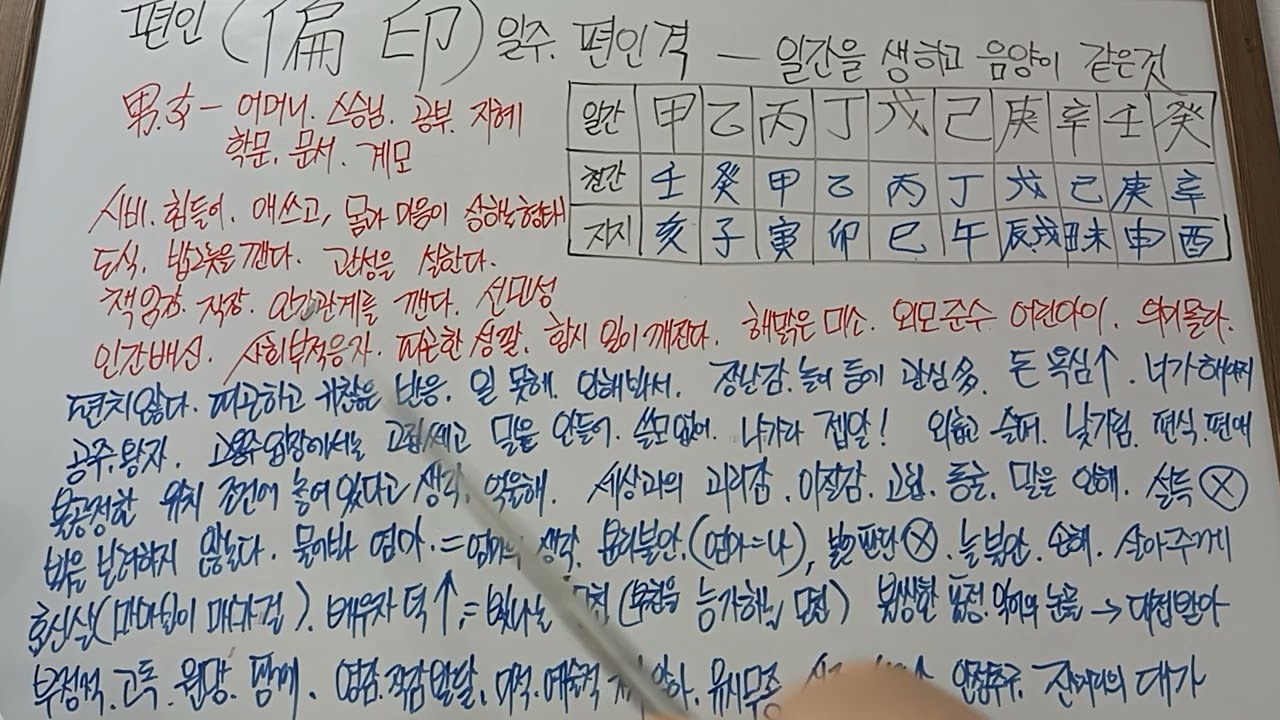 편인 (偏印) 일주. 편인격 — 일간을 생하고 음양이 같은것
男.女 - 어머니. 스승님. 공부. 지혜
학문. 문서. 계모
일간 甲 乙 丙 丁 戊 己 庚 辛 壬 癸
천간 壬 癸 甲 乙 丙 丁 戊 己 庚 辛
지지 亥 子 寅 卯 巳 午 辰,戌 丑未 申 酉
시비. 힘들어. 애쓰고, 몸과 마음이 상하는형태
도식. 밥그릇을 깬다. 관성을 설한다.
책임감. 직장. 인간관계를 깬다. 선민성
인간배신. 사회부적응자. 피곤한 성깔. 항시 일이 깨진다. 해맑은 미소. 외모준수 어린아이. 의미몰라.
편치않다. 피곤하고 귀찮은 반응. 일 못해. 안해봐서. 장난감.놀이 등에 관심多. 돈 욕심↑. 너가해야지
공주.왕자. 고용주입장에서는 고집세고 말을 안들어. 쓸모없어. 나가라 젭알! 외롭고 슬퍼. 낯가림. 편식.편애
불공정한 위치 조건에 놓여있다고 생각. 억울해. 세상과의 괴리감. 이질감. 고립. 동굴. 말을 안해. 설득 ⓧ
밖을 보려하지 않는다. 물어봐 엄마.=엄마의 생각. 분리불안.(엄마=나), 판단ⓧ. 늘불안. 손해. 살아주는게
효신살 배우자 덕↑.= 빛나는 모친 (부친을 능가하는 모친) 불쌍한 표정. 눈물 → 대접받아
부정적.고독. 원망. 영감.직감발달. 미적.예술적 유시무종 안정추구. 잔머리의 대가